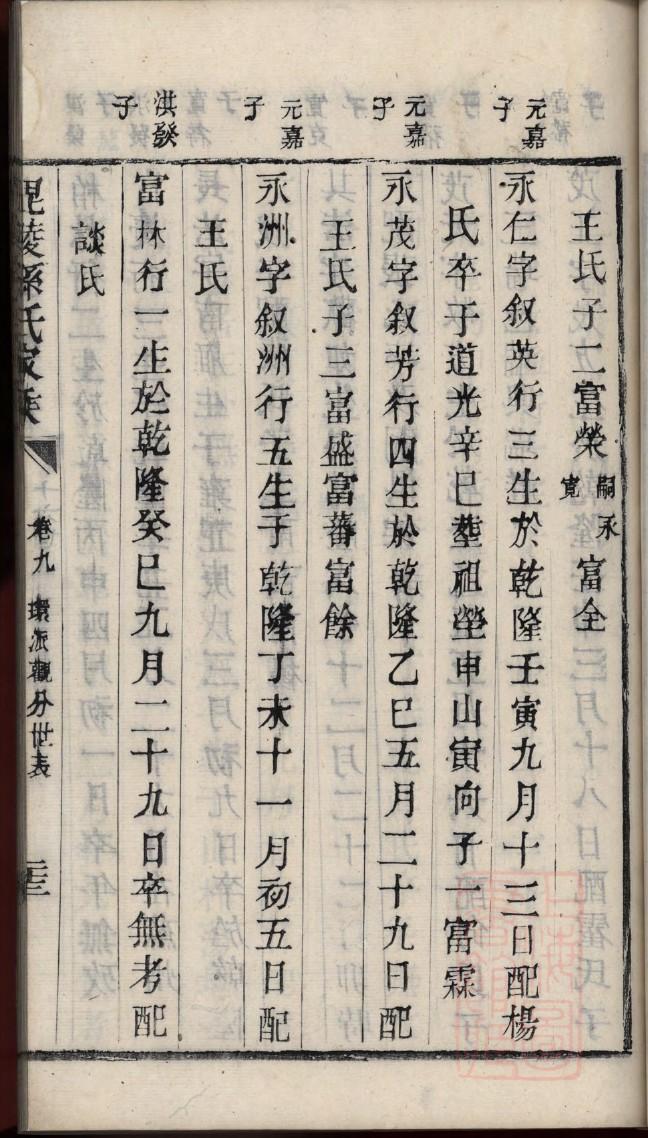 王氏子二富榮嗣永寬富全
元嘉子
永仁字叙英行三生於乾隆壬寅九月十三日配楊
氏卒于道光辛巳塟祖塋申山寅向子一富霖
元嘉子
永茂字叙芳行四生於乾隆乙巳五月二十九日配
王氏子三富盛富蕃富餘
元嘉子
永洲字叙洲行五生于乾隆丁未十一月初五日配
王氏
洪發子
富林行一生於乾隆癸巳九月二十九日卒無考配
談氏
毘陵孫氏家乘
卷九
環派觀分世表